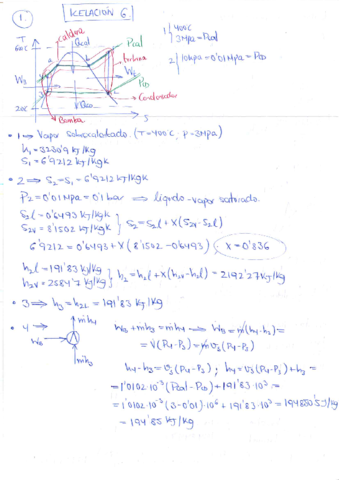 1.
RELACIÓN 6
T
caldera
Qcal
Pcal
turbina
PCD
Condensador
Bomba
S
1 | 400ºC
3 MPa = Pcal
2 | 10 KPa = 0'01 MPa = PCD
• 1 ⇒ Vapor sobrecalentado. (T=400ºC, P=3MPa)
h₁ = 3230'9 KJ/Kg
S₁ = 6'9212 KJ/KgK
• 2 ⇒ S₂ = S₁ = 6'9212 KJ/KgK
P₂ = 0'01 MPa = 0'1 bar ⇒ líquido-vapor saturado.
S₂l = 0'6493 KJ/KgK
S₂v = 8'1502 KJ/KgK } S₂ = S₂l + X(S₂v - S₂l)
6'9212 = 0'6493 + X(8'1502 - 0'6493) , X = 0'836
h₂l = 191'83 KJ/Kg
h₂v = 2584'7 KJ/Kg } h₂ = h₂l + X(h₂v - h₂l) = 2192'27 KJ/Kg
• 3 ⇒ h₃ = h₂l = 191'83 KJ/Kg
• 4 ⇒
ṁh₄
ẆB
ṁh₃
ẆB + ṁh₃ = ṁh₄ ⇒ ẆB = ṁ(h₄ - h₃) =
= V̇(P₄ - P₃) = ṁ v₃(P₄ - P₃)
h₄ - h₃ = v₃(P₄ - P₃) ; h₄ = v₃(P₄ - P₃) + h₃ =
= 1'0102·10⁻³(Pcal - PCD) + 191'83·10³ =
= 1'0102·10⁻³(3 - 0'01)·10⁶ + 191'83·10³ = 194850'5 J/Kg
= 194'85 KJ/Kg